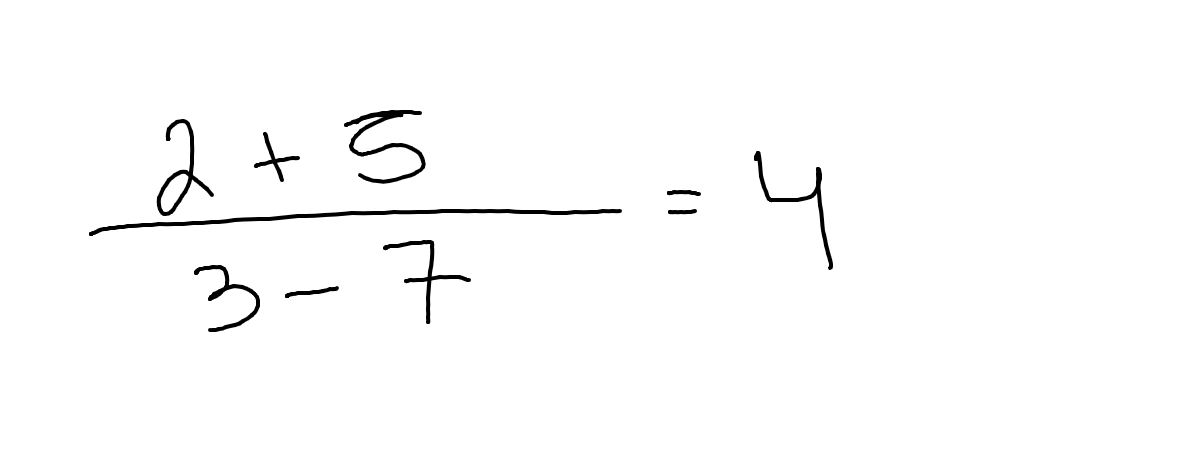 2 + 5
3 - 7
= 4